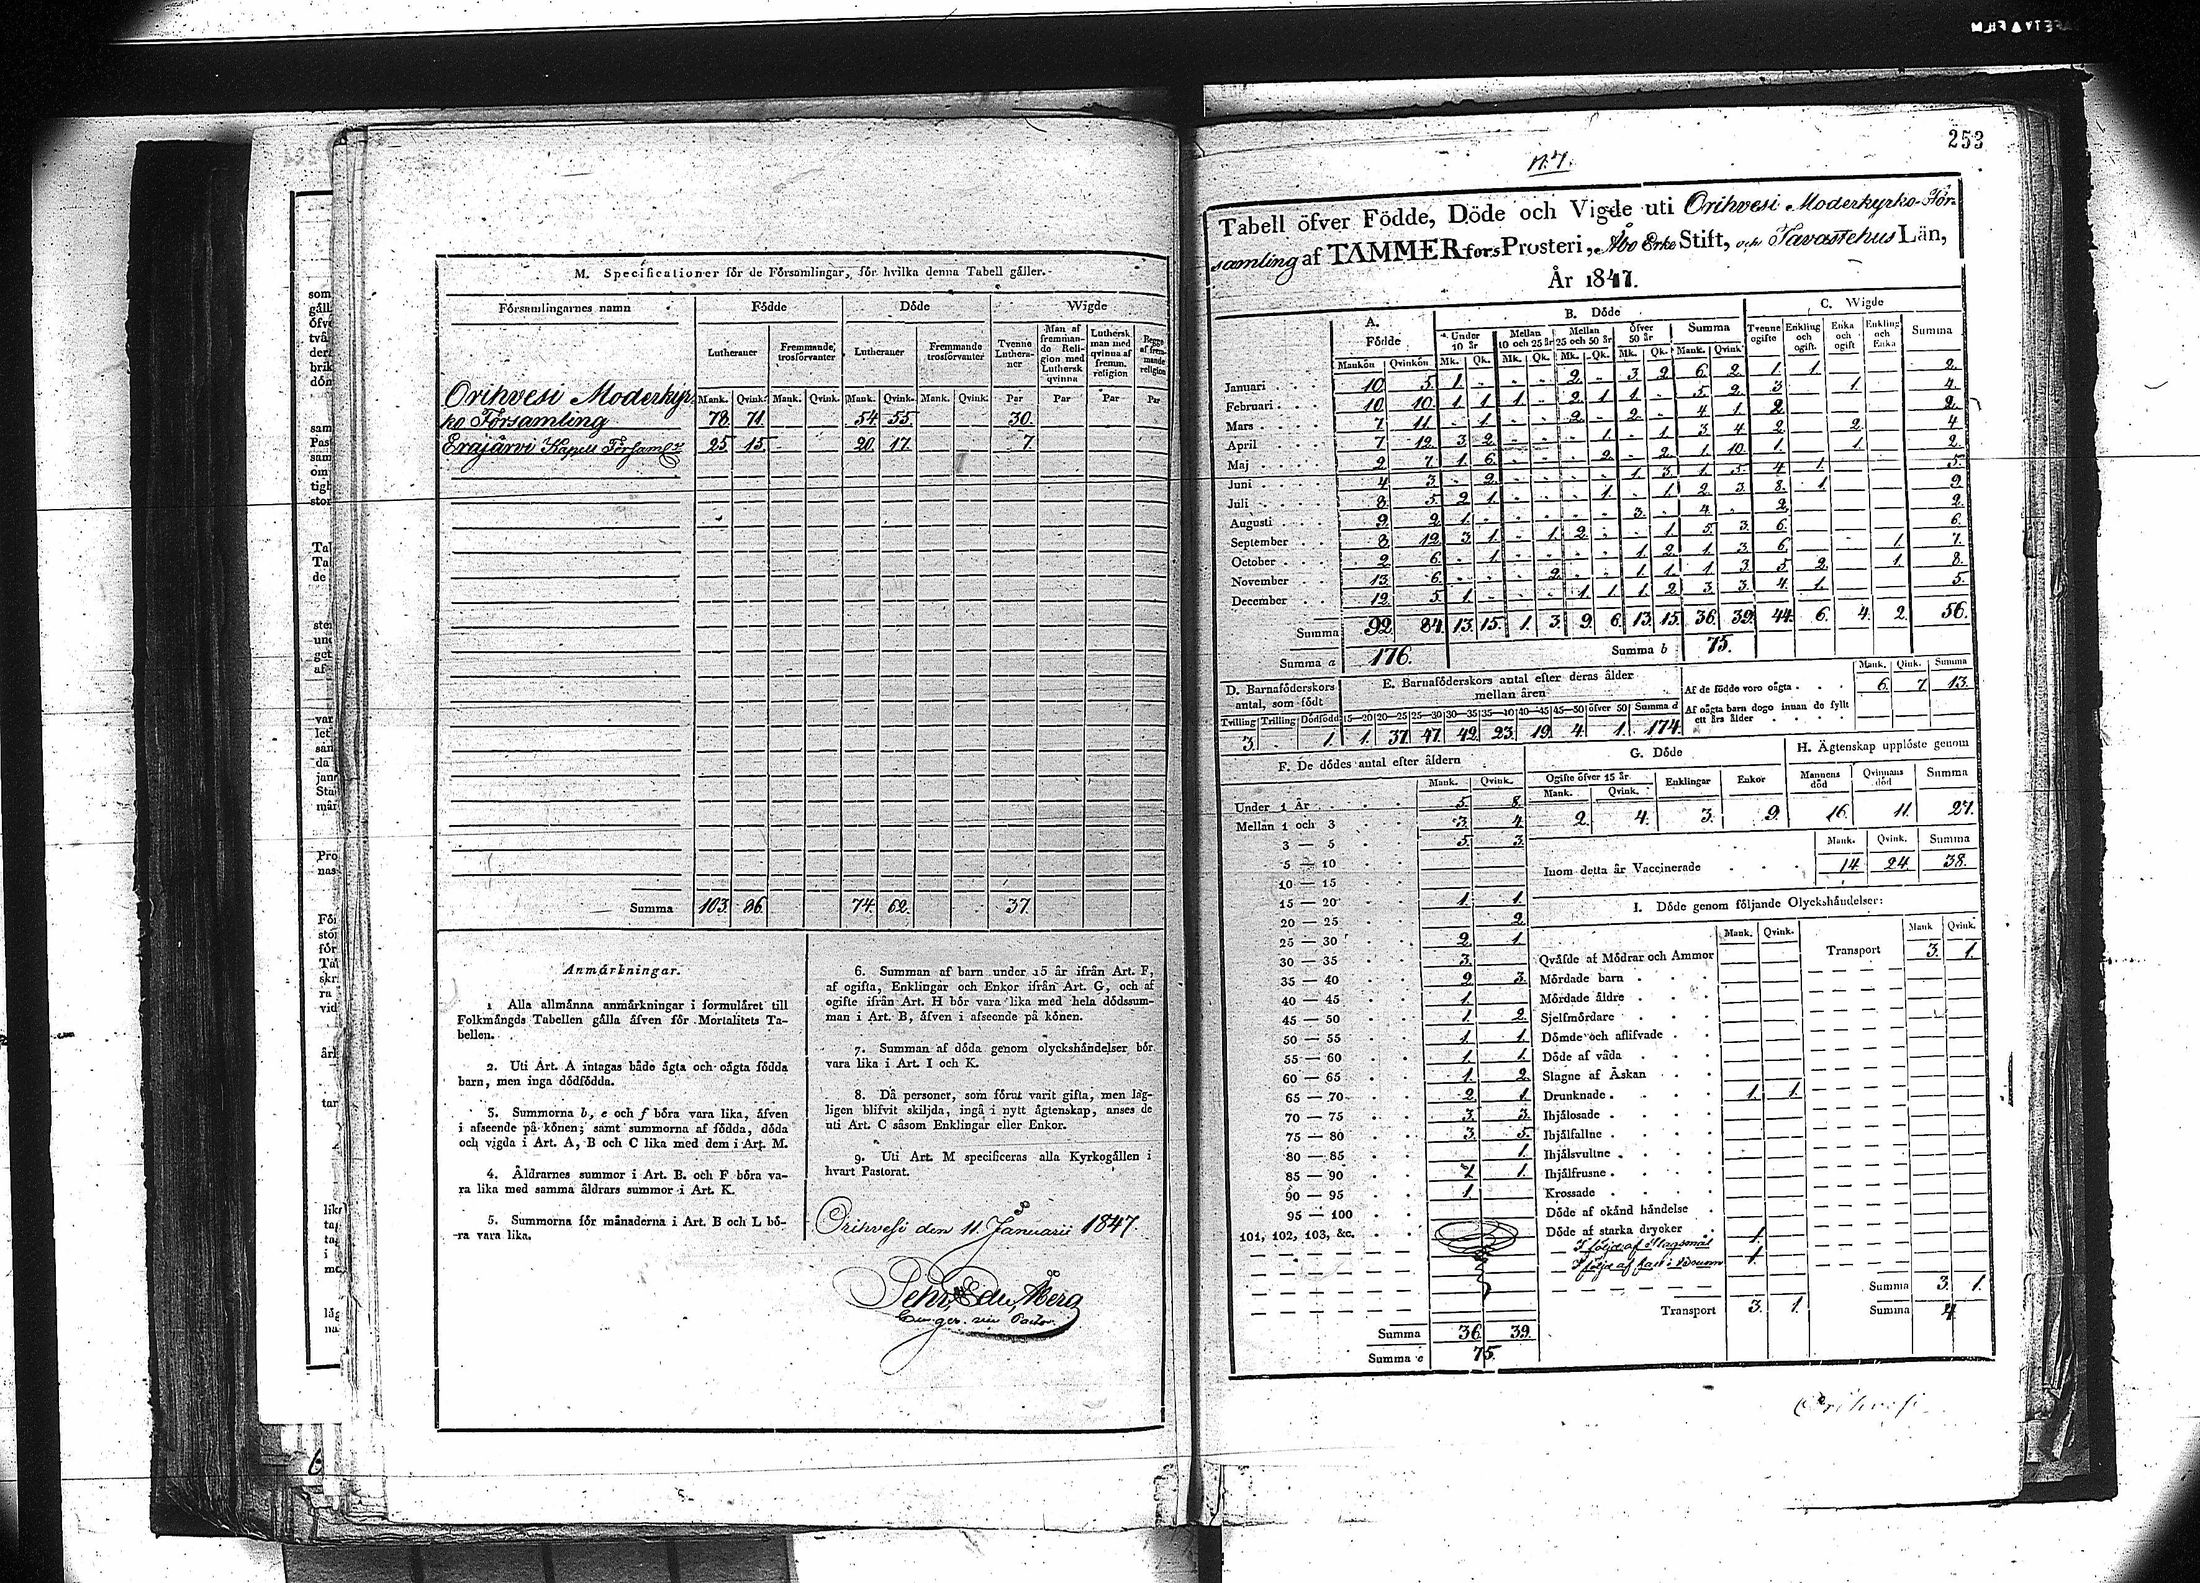 M. Specificationer för de Församlingar, för hvilka denna Tabell gäller.
Församlingarnes namn Födde Döde Wigde
Lutheraner Fremmande trosförvanter Lutheraner Fremmande trosförvanter Tvenne Lutheraner Man af fremmande Religion med Luthersk qvinna Luthersk man med qvinna af fremm. religion Begge af fremmande religion
Mank. Qvink. Mank. Qvink. Mank. Qvink. Mank. Qvink. Par Par Par Par
Orihvesi Moderkyr-
ko Församling 78. 71. 54. 55. 30.
Erajärvi Kapell Församl. 25. 15. 20. 17. 7.
Summa 103. 86. 74. 62. 37.
Anmärkningar.
1 Alla allmänna anmärkningar i formuläret till
Folkmängds Tabellen gälla äfven för Mortalitets Ta-
bellen.
2. Uti Art. A intagas både ägta och oägta födda
barn, men inga dödfödda.
3. Summorna b, e och f böra vara lika, äfven
i afseende på könen; samt summorna af födda, döda
och vigda i Art. A, B och C lika med dem i Art. M.
4. Åldrarnes summor i Art. B. och F böra va-
ra lika med samma åldrars summor i Art. K.
5. Summorna för månaderna i Art. B och L bö-
ra vara lika.
6. Summan af barn under 15 år ifrån Art. F,
af ogifta, Enklingar och Enkor ifrån Art. G, och af
ogifte ifrån Art. H bör vara lika med hela dödssum-
man i Art. B, äfven i afseende på könen.
7. Summan af döda genom olyckshändelser bör
vara lika i Art. I och K.
8. Då personer, som förut varit gifta, men lag-
ligen blifvit skiljda, ingå i nytt ägtenskap, anses de
uti Art. C såsom Enklingar eller Enkor.
9. Uti Art. M specificeras alla Kyrkogällen i
hvart Pastorat.
Orihvesi den 11. Januarii 1847.
253
N:7.
Tabell öfver Födde, Döde och Vigde uti Orihvesi Moderkyrko-För-
samling af TAMMERfors Prosteri, Åbo Erke Stift, och Tavastehus Län,
År 1847.
A. Födde B. Döde C. Wigde
Under 10 år Mellan 10 och 25 år Mellan 25 och 50 år Öfver 50 år Summa Tvenne ogifte Enkling och ogift. Enka och ogift Enkling och Enka Summa
Mankön Qvinkön Mk. Qk. Mk. Qk. Mk. Qk. Mk. Qk. Mank. Qvink.
Januari 10 5. 1. 2. 3. 2. 6. 2. 1. 1. 2.
Februari 10 10. 1. 1. 1. 2. 1. 1. 5. 2. 3. 1. 4.
Mars 7 11. 1. 2. 2. 4. 1. 2. 2.
April 7 12. 3. 2. 1. 1. 3. 4. 2. 2. 4
Maj 2 7. 1. 6. 2. 2. 1. 10. 1. 1. 2.
Juni 4 3. 2. 1. 3. 1. 5. 4. 1. 5.
Juli 8 5. 2. 1. 1. 1. 2. 3. 8. 1. 9
Augusti 9. 2. 1. 3. 4. 2. 2.
September 8 12. 3. 1. 1. 2. 1. 5. 3. 6. 6.
October 2 6. 1. 1. 2. 1. 3. 6. 1. 7.
November 13 6. 2. 1. 1. 1. 3 5. 2. 1. 8.
December 12. 5. 1. 1. 1. 1. 2. 3. 3. 4. 1. 5.
Summa 92. 84. 13. 15. 1. 3. 9. 6. 13. 15. 36. 39. 44. 6. 4. 2. 56.
Summa a 176. Summa b 75.
D. Barnaföderskors antal, som födt
Tvilling Trilling Dödfödd
3. 1.
E. Barnaföderskors antal efter deras ålder mellan åren
15—20 20—25 25—30 30—35 35—40 40—45 45—50 öfver 50 Summa d
1. 37. 47. 42. 23. 19. 4. 1. 174.
Mank. Qink. Summa
Af de födde voro oägta 6. 7. 13.
Af oägta barn dogo innan de fyllt
ett års ålder
F. De dödes antal efter åldern
Mank. Qvink.
Under 1 År 5. 8.
Mellan 1 och 3 3. 4.
3 — 5 5. 3.
5 — 10
10 — 15
15 — 20 1. 1.
20 — 25 2.
25 — 30 2. 1.
30 — 35 3.
35 — 40 2. 3.
40 — 45 1.
45 — 50 1. 2.
50 — 55 1. 1.
55 — 60 1. 1.
60 — 65 1. 2.
65 — 70 2. 1.
70 — 75 3. 3.
75 — 80 3. 5.
80 — 85 1.
85 — 90 1.
90 — 95 1.
95 — 100
101, 102, 103, &c.
Summa 36. 39.
Summa e 75.
G. Döde
Ogifte öfver 15 år Enklingar Enkor
Mank. Qvink.
2. 4. 3. 9.
H. Ägtenskap upplöste genom
Mannens död Qvinnans död Summa
16. 11. 27.
Mank. Qvink. Summa
Inom detta år Vaccinerade 14. 24. 38.
I. Döde genom följande Olyckshändelser:
Mank. Qvink. Mank Qvink.
Qväfde af Mödrar och Ammor Transport 3. 1.
Mördade barn
Mördade äldre
Sjelfmördare
Dömde och aflifvade
Döde af våda
Slagne af Åskan
Drunknade 1. 1.
Ihjälosade
Ihjälfallne
Ihjälsvultne
Ihjälfrusne
Krossade
Döde af okänd händelse
Döde af starka drycker 1.
I följe af Slagsmål 1.
I följe af fall i brunn 1.
Summa 3. 1.
Transport 3. 1. Summa 4.
Orihvesi